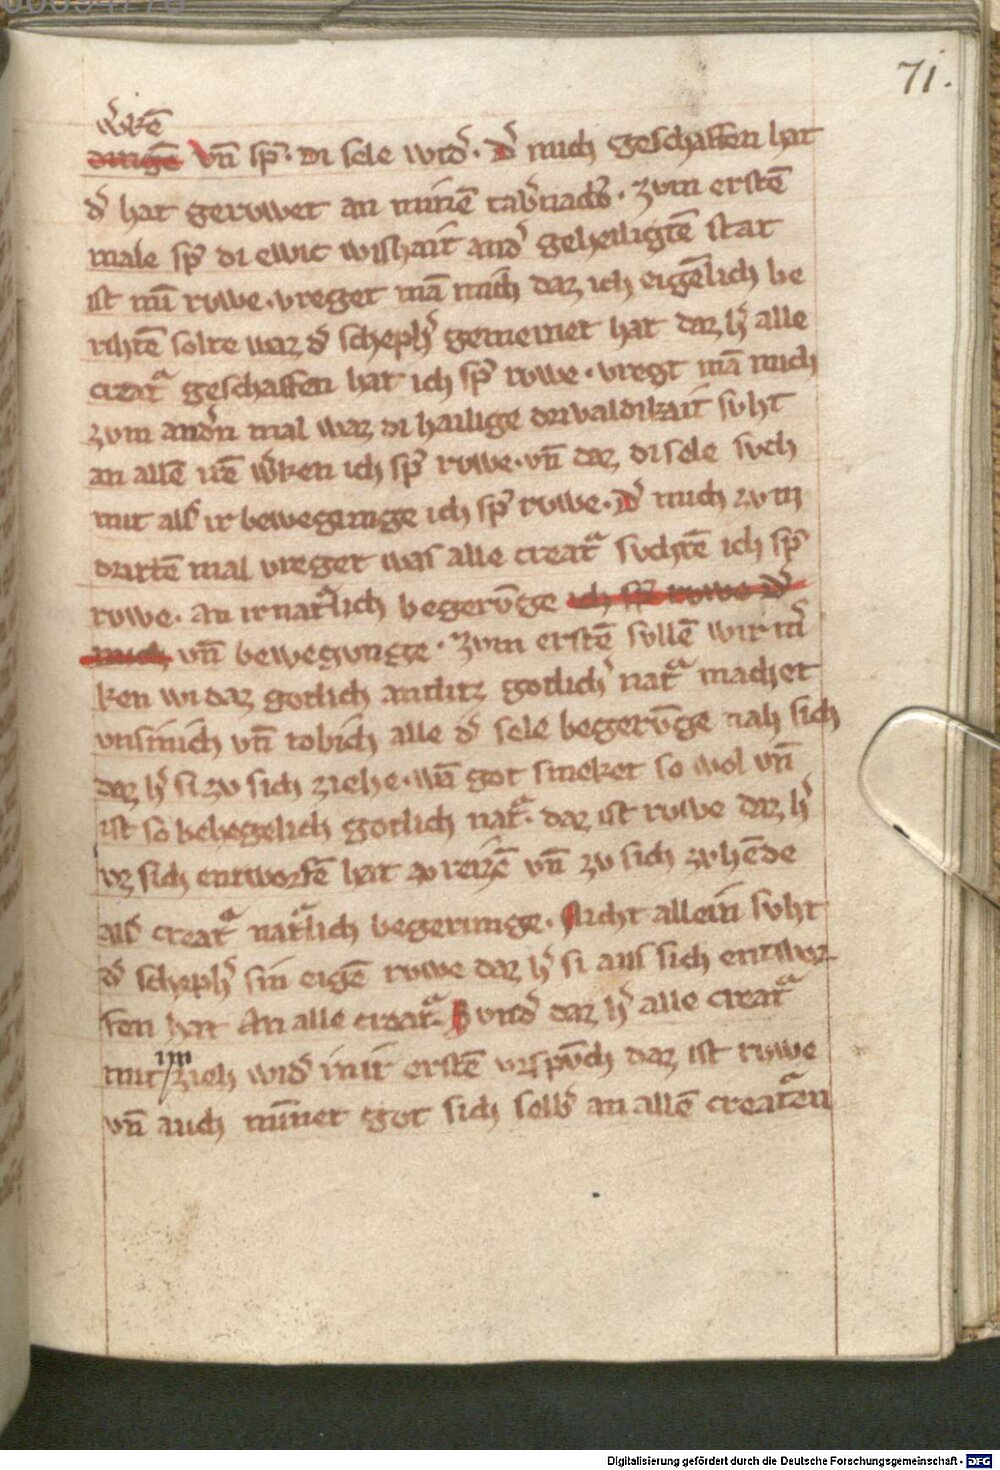 71.
w̓kē
dingē vn̄ sp̄. di sele wid̓. d̓ mich geschaffen hat
d̓ hat geruwet an minē tab̓nacls. zvm erstē
male sp̓ di ewic wishait and̓ geheiligtē stat
ist mī ruwe. vreget mā mich daz ich eigēlich be
rihtē solte waz d̓ scheph̓ gemeinet hat daz h̓ alle
creatᵃ geschaffen hat ich sp̓ ruwe. vregt mā mich
zvm and̓n mal waz di hailige drivaldikait svht
an allē irē w̓ken ich sp̓ ruwe. vn̄ daz di sele svch
mit all̓ ir bewegunge ich sp̓ ruwe. d̓ mich zvm
drittē mal vreget was alle creatᵃ svchtē ich sp̓
ruwe. an ir natᵃlich begerv̄ge ich sp̓ ruwe d̓
mich vn̄ bewegvnge. zvm erstē svllē wir m̓
ken wi daz gotlich antlitz gotlich̓ natᵃ machet
vnsinich vn̄ tobich alle d̓ sele begerv̄ge nah sich
daz h̓ si zv sich ziehe. wā got smeket so wol vn̄
ist so behegelich gotlich natᵃ. daz ist ruwe daz h̓
vz sich entworfē hat zv reizē vn̄ zv sich zvhēde
all̓ creatᵃ natᵃlich begerunge. Nicht allein svht
d̓ scheph̓ sin eigē ruwe daz h̓ si aus sich entwor
fen hat An alle creatᵃ. Svnd̓ daz h̓ alle creatᵃ
mit im zieh wid̓ in ir erstē vrspv̄ch daz ist ruwe
vn̄ auch mīnet got sich selb̓ an allē creatᵃen
Digitalisierung gefördert durch die Deutsche Forschungsgemeinschaft - DFG